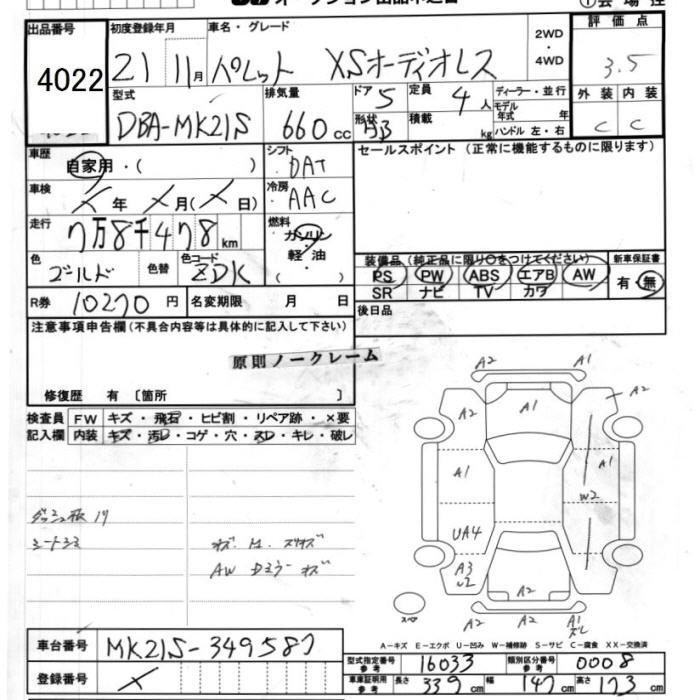 出品番号
4022
初度登録年月
21 11月
車名・グレード
パレット XSオーディオレス
2WD・4WD
評価点
3.5
型式
DBA-MK21S
排気量
660cc
ドア 5
形状
定員 4人
積載 kg
ディーラー・並行
モデル年式 年
ハンドル 左・右
外装 C
内装 C
車歴
自家用・( )
シフト
DAT
セールスポイント(正常に機能するものに限ります)
車検
年 月( 日)
冷房
AAC
走行
7万8千478km
燃料
ガソリン
軽油
( )
色
ゴールド
色替
色コード
ZDK
装備品(純正品に限り○をつけてください)
PS PW ABS エアB AW
SR ナビ TV カワ
新車保証書
有・無
R券 10270円
名変期限 月 日
後日品
注意事項申告欄(不具合内容等は具体的に記入して下さい)
原則ノークレーム
修復歴 有〔箇所 〕
検査員記入欄
FW キズ・飛石・ヒビ割・リペア跡・×要
内装 キズ・汚レ・コゲ・穴・スレ・キレ・破レ
シートシミ
A2 A1
A2 A1 A2
A1 A1
W2
UA4
A3
U2
A2
A2 A2 A1
スレ
スペア
A-キズ E-エクボ U-凹み W-補修跡 S-サビ C-腐食 XX-交換済
車台番号 MK21S-349587
登録番号
型式指定番号 参考 16033
類別区分番号 参考 0008
車庫証明用 参考 長さ 339cm 幅 147cm 高さ 173cm